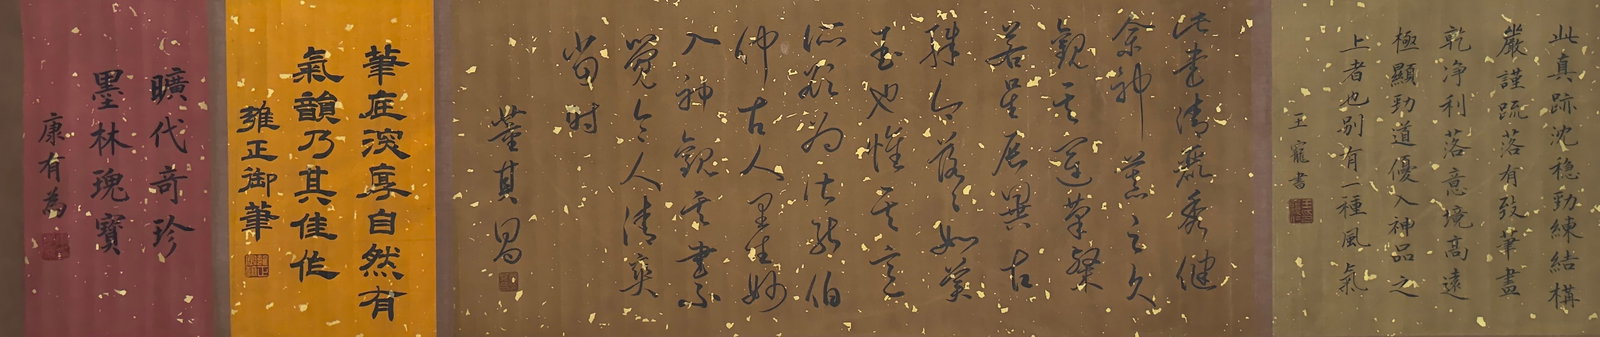 此真跡沈穩勁練結構
嚴謹疏落有致筆畫
乾净利落意境高遠
極顯勁道優入神品之
上者也别有一種風氣
王寵書
此書清麗秀健
余神慕之久
觀其運筆粲
若星辰異古
殊今落落如
玉也惟其意
法能伯
仲古人其妙
入神觀其書不
覺令人清爽
當时
董其昌
筆淡厚自然有
氣韻乃其佳作
雍正御筆
曠代奇珍
墨林瑰寶
康有為